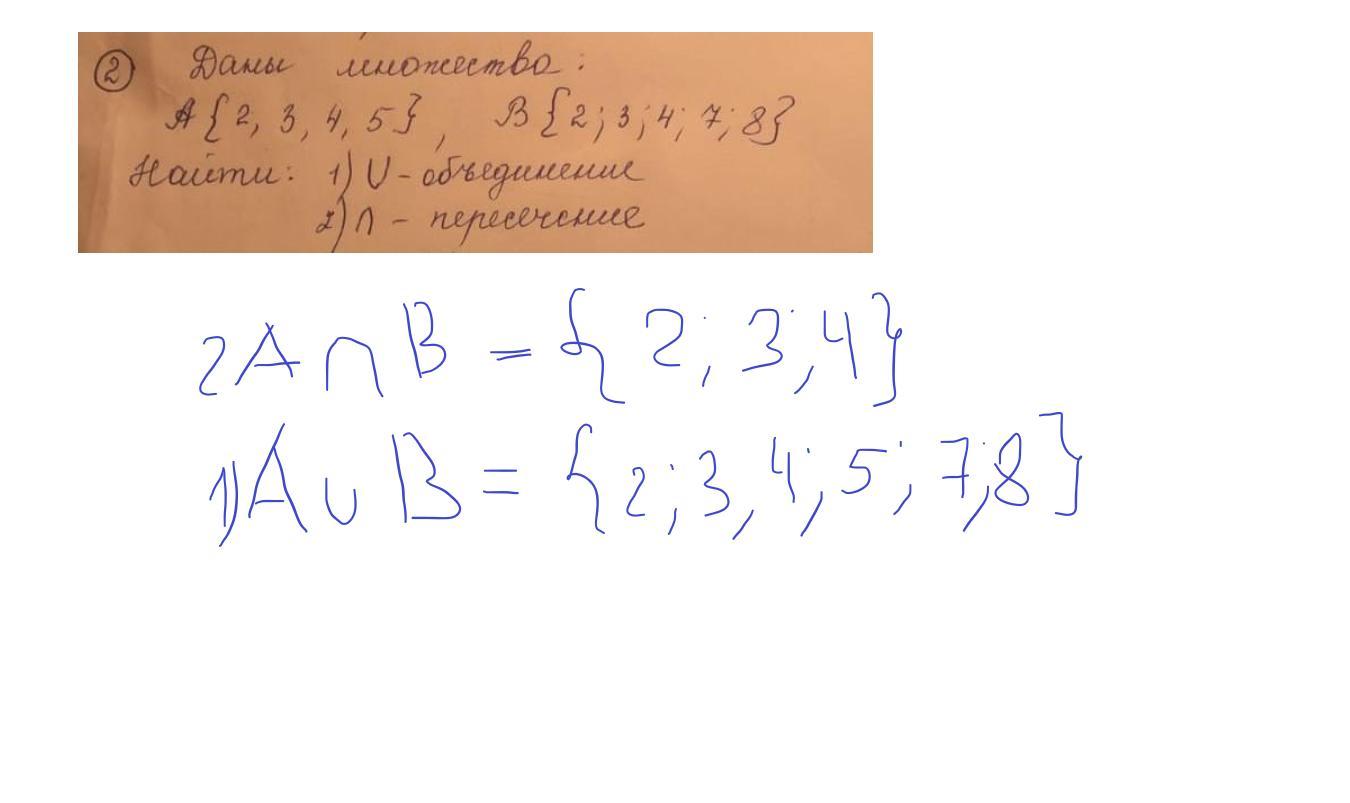 ② Даны множества:
A{2, 3, 4, 5}, B{2; 3; 4; 7; 8}
Найти: 1) ∪ - объединение
2) ∩ - пересечение
2 A ∩ B = {2; 3; 4}
1) A ∪ B = {2; 3, 4; 5; 7; 8}